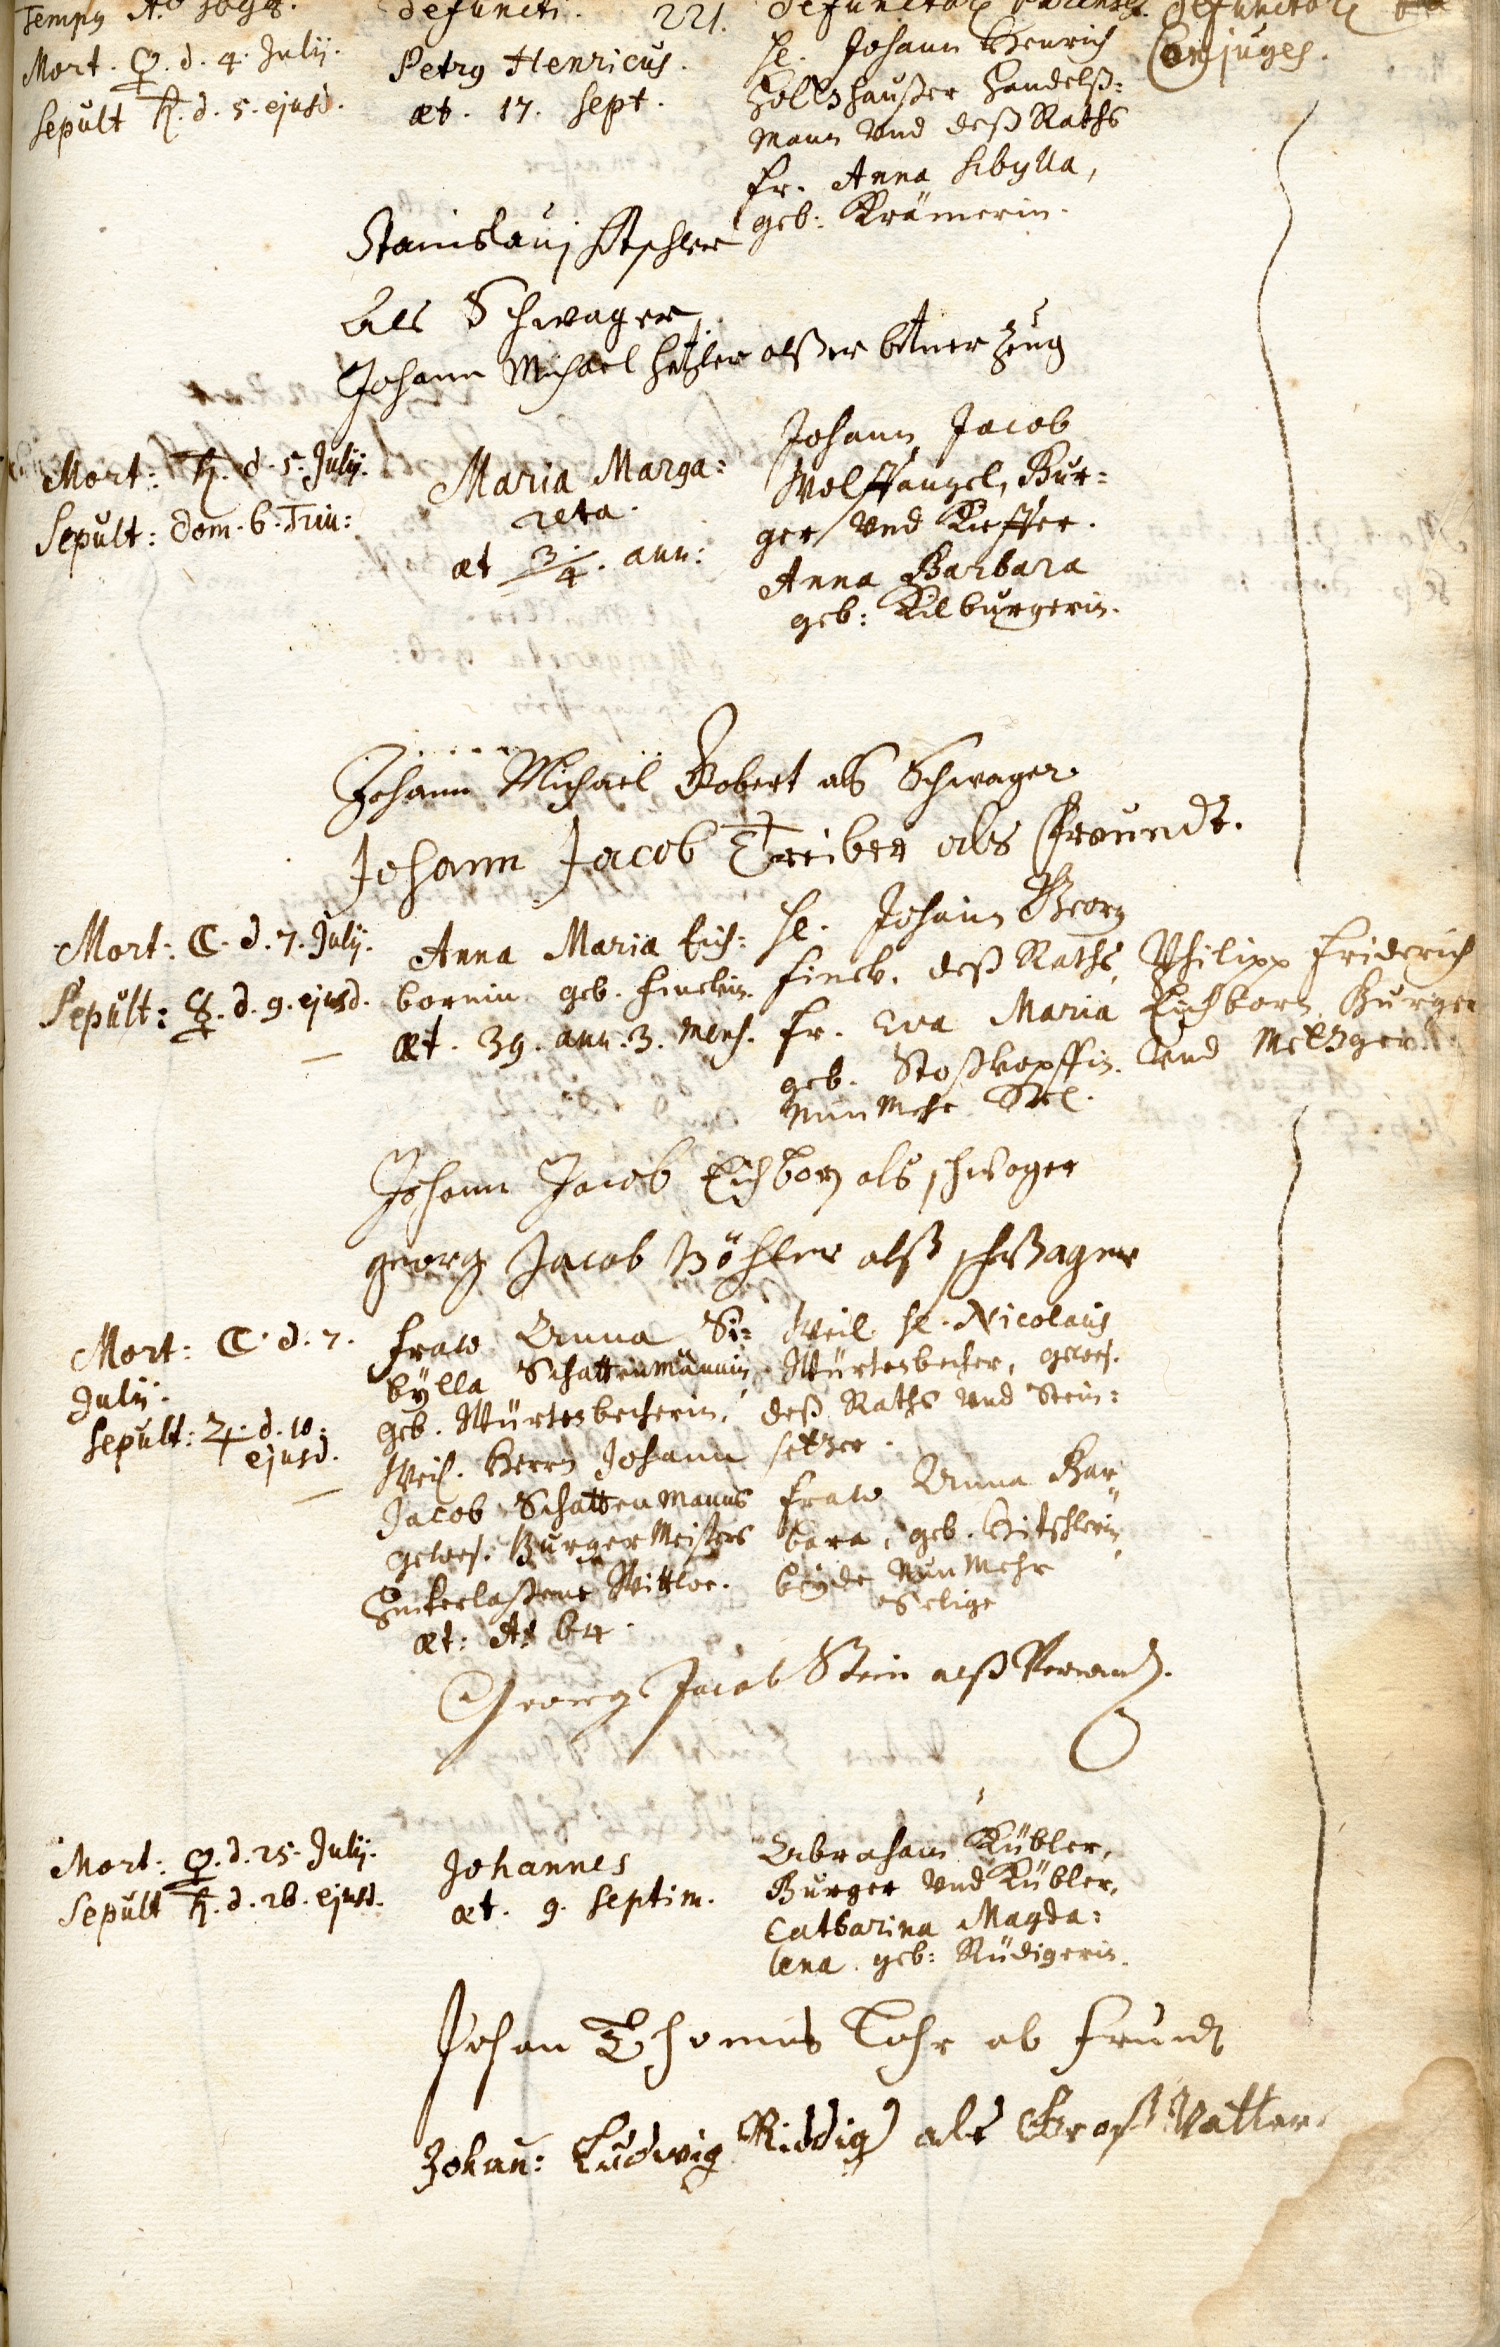 Tempg Aº 1698. defuncti. 221. defunctorz parentes. defunctorz
Conjuges.
Mort. ♀. d. 4. Julij.
Sepult ♄. d. 5. ejusd.
Petrg Henricus.
æt. 17. Sept.
He. Johann Henrich
Holtzhaußer Handelß=
Mann Vnd deß Raths
Fr. Anna Sibylla,
geb: Krämerin.
Stanislaus
als Schwager
Johann Michael Hetzler alßer bttner Zeug
Mort: ♄. d. 5. Julij.
Sepult: Dom. 6. Trin:
Maria Marga=
reta.
æt 3/4. ann:
Johann Jacob
Wolffangel, Bur=
ger Vnd Kieffer.
Anna Barbara
geb: Kilburgerin.
Johann Michaël Robert als Schwager
Johann Jacob Treiber als Freundt.
Mort: ☾. d. 7. Julij.
Sepult: ☿. d. 9. ejusd.
Anna Maria Eich=
bornin geb. Finckin.
æt. 39. ann. 3. Mens.
He. Johann Georg
Finck. deß Raths,
Fr. Eva Maria
geb. Stoßkopffin.
Nun Mehr Sel.
Philipp Friderich
Eichborn, Burger
Vnd Metzger.
Johann Jacob Eichborn als schwager
georg Jacob Böhler alß schwager
Mort: ☾. d. 7.
Julij.
Sepult: ♃. d. 10.
ejusd.
Fraw Anna Si=
bÿlla Schattenmännin
geb. Würtzbecherin,
Weil. Herrn Johann
Jacob Schattenmanns
gewes. Burger Meisters
Hinterlaßene Wittwe.
æt: Aº 64.
Weil. He. Nicolaus
Würtzbecher, gewes.
deß Raths Vnd Stein=
setzer.
Fraw Anna Bar
bara, geb. Hitschlerin,
beyde Nun Mehr
Selige
Georg Jacob Stein alß Verwandt.
Mort: ♀. d. 25. Julij.
Sepult ♄. d. 26. ejusd.
Johannes
æt. 9. Septim.
Abraham Kübler,
Burger Vnd Kübler,
Catharina Magda=
lena. geb: Rüdigerin.
Johan Thomas Lohr als freund
Johan: Ludwig Riddig als Groß Vatter.